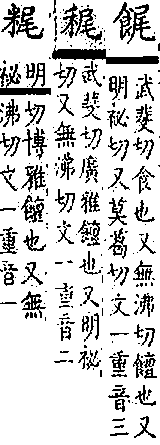 武斐切食也又無沸切饘也又
明祕切又莫葛切文一重音三
武斐切廣雅饘也又明祕
切又無沸切文一重音二
明切博雅饘也又無
祕沸切文一重音一